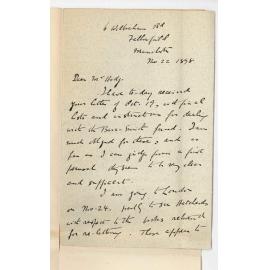 6 Wilbraham Rd
Fallowfield
Manchester
Nov 22 1898
Dear Mr Hodge
I have to-day received
your letter of Oct. 19, and final
lists and instructions for dealing
with the friend. I am
much obliged for these, and so
far as I can judge from a first
perusal they seem to be very clear
and sufficient.
I am going to London
on Nov. 24. partly to see
with respect to the returned
for re-lettering. There appears to